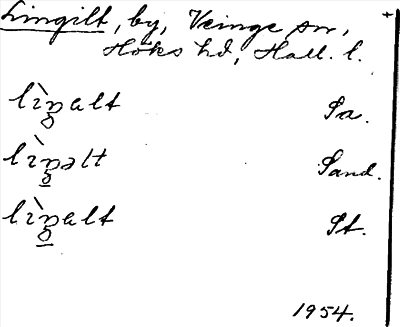 Lingilt, by, Veinge sn,
Höks hd, Hall. l.
lìŋalt Sa.
lìŋəlt Sand.
lìŋalt St.
1954.